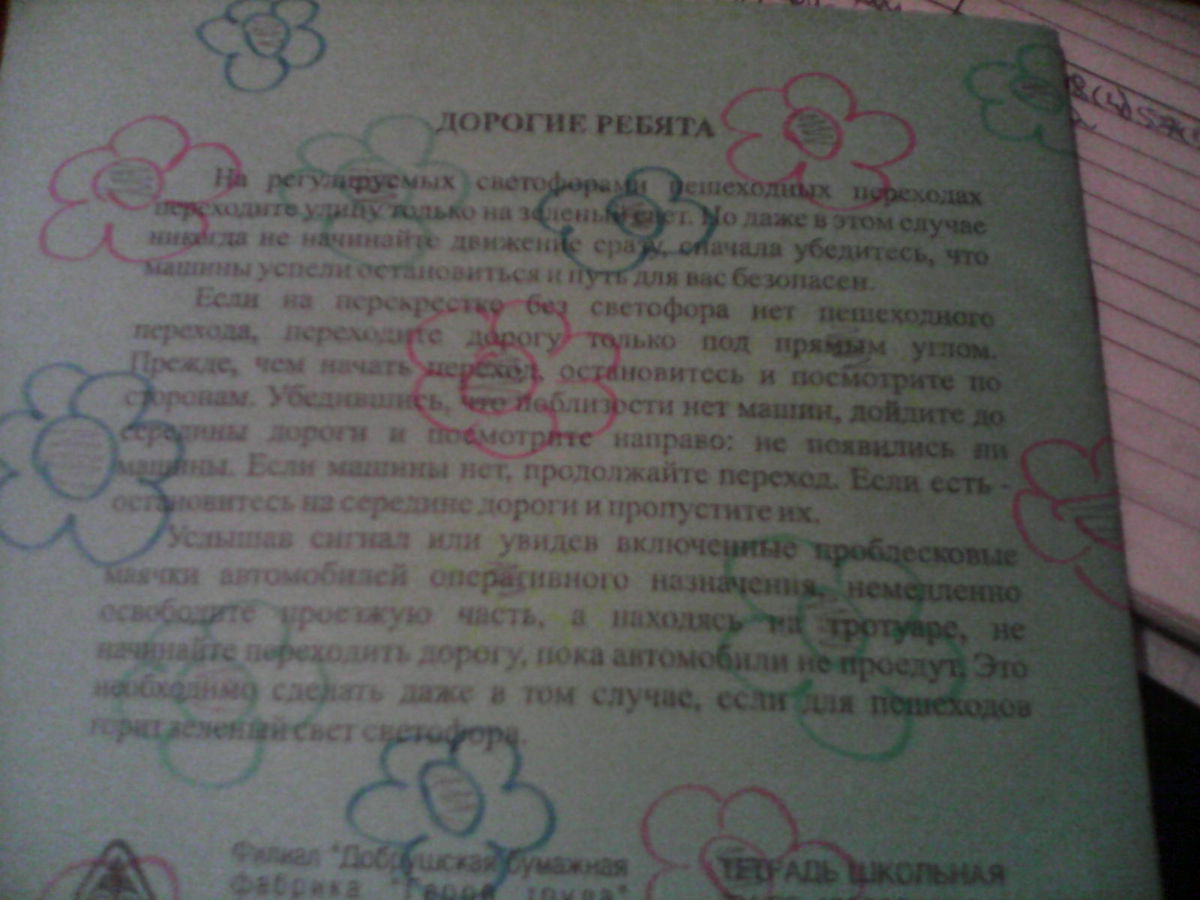 ДОРОГИЕ РЕБЯТА
На регулируемых светофорами пешеходных переходах
переходите улицу только на зеленый свет. Но даже в этом случае
никогда не начинайте движение сразу, сначала убедитесь, что
машины успели остановиться и путь для вас безопасен.
Если на перекрестке без светофора нет пешеходного
перехода, переходите дорогу только под прямым углом.
Прежде, чем начать переход, остановитесь и посмотрите по
сторонам. Убедившись, что поблизости нет машин, дойдите до
середины дороги и посмотрите направо: не появились ли
машины. Если машины нет, продолжайте переход. Если есть -
остановитесь на середине дороги и пропустите их.
Услышав сигнал или увидев включенные проблесковые
маячки автомобилей оперативного назначения, немедленно
освободите проезжую часть, а находясь на тротуаре, не
начинайте переходить дорогу, пока автомобили не проедут. Это
необходимо сделать даже в том случае, если для пешеходов
горит зеленый свет светофора.
Филиал "Добрушская бумажная
фабрика "Герой труда"
ТЕТРАДЬ ШКОЛЬНАЯ